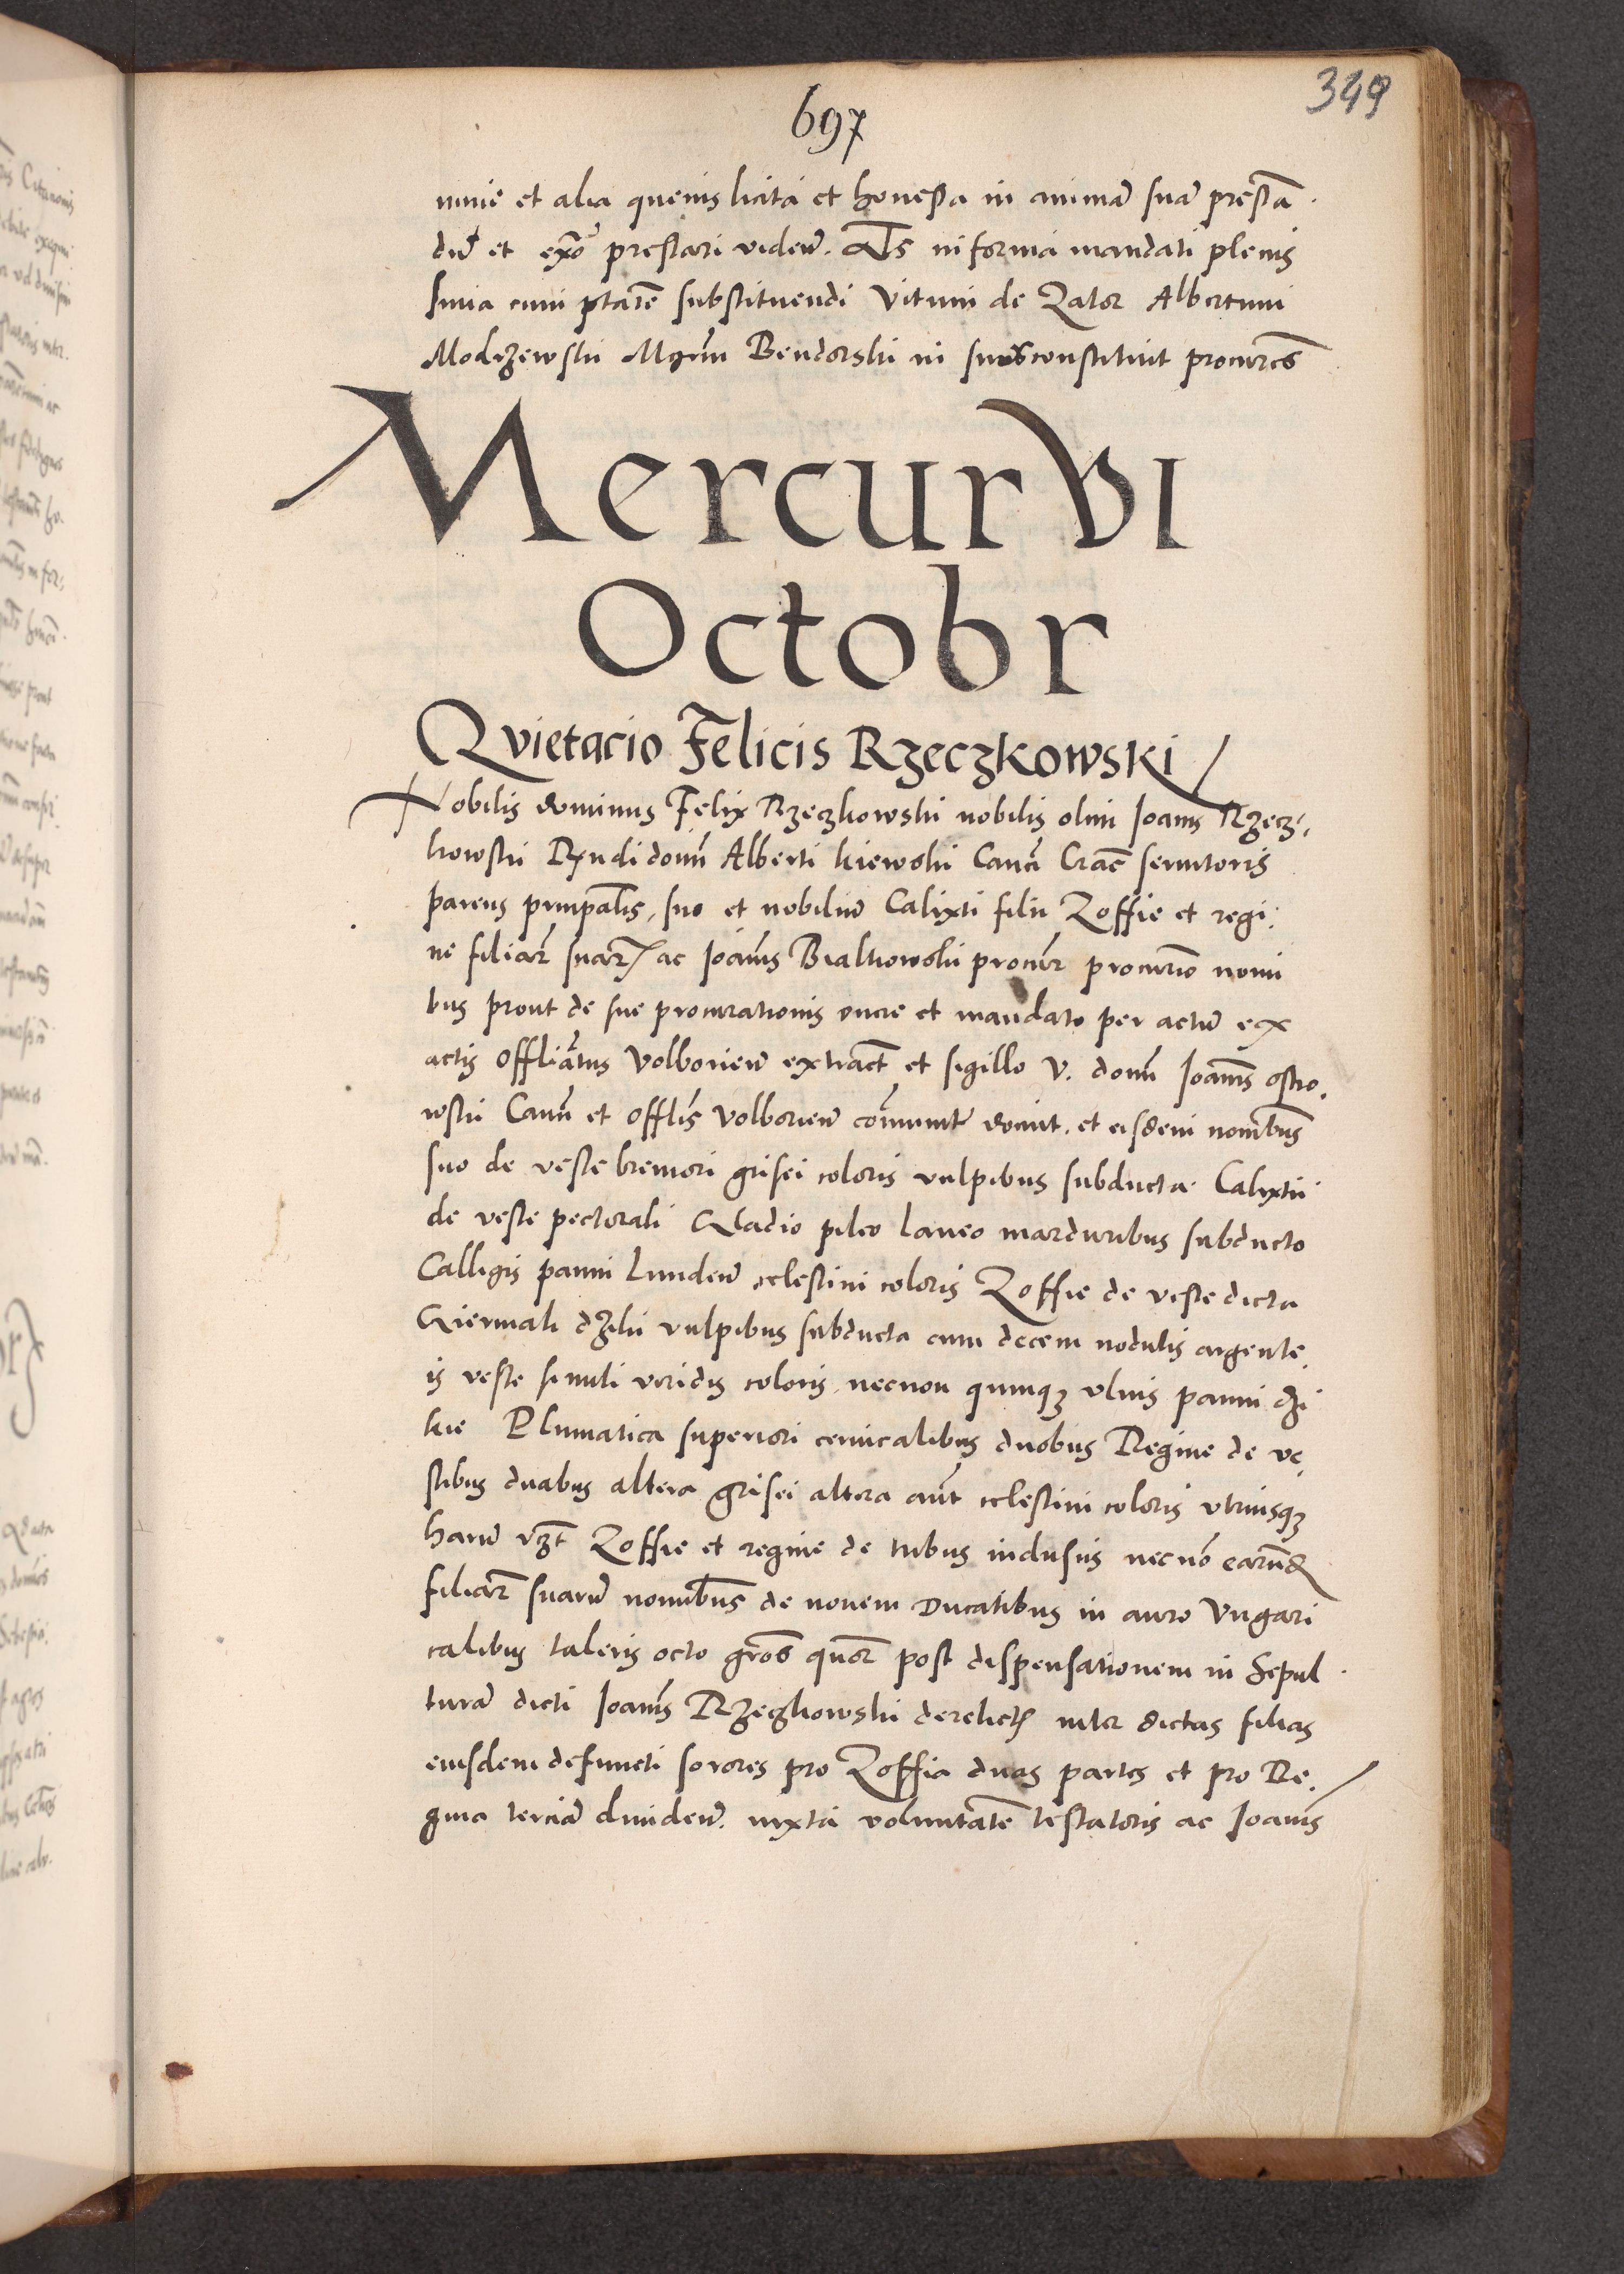 349
697
nnie et alia quevis licita et honesta in animā suā prestā
dū et exo prestari videū. Ats in forma mandati plenis
sima cum ptate substituendi Vitum de Zator Albertum
Modrzewski Mgrm Bendorski in suos constituit procurēs
Mercur VI
Octobr
Qvietacio Felicis Rzeczkowski
Nobilis dominus Felix Rzeczkowski nobilis olim Joanis Rzecz
kowski Rndi domi Alberti kiewski Canci Crac servitoris
parens prnpalis, suo et nobiliū Calixti filii Zoffie et regi
ne filiar suar ac Joanis Bialkowski procur procurio nomi
bus prout de sue procurationis onere et mandato per actū ex
actis Offliatus Volborien extract et sigillo V. domi Joanis ostro
wski Canci et Offlis Volborien comunit docuit. et eisdem nominibus
suo de veste breviori grisei coloris vulpibus subducta. Calixti
de veste pectorali Gladio pileo laneo marduribus subducto
Calligis panni Lunden celestini coloris Zoffie de veste dicta
Giermak dzikii vulpibus subducta cum decem nodulis argente
is veste simili viridis coloris necnon quinqȝ ulnis panni dzi
kie Plumatica superiori cervicalibus duobus Regine de ve
stibus duabus altera grisei altera aut celestini coloris utriusqȝ
harū vȝt Zoffie et regine de tribus indusiis necnō earūd
filiar suarū nominibus de novem Ducatibus in auro Vngari
calibus taleris octo gros quor post dispensationem in Sepul
turā dicti Joanis Rzeczkowski derelict inter dictas filias
eiusdem defuncti sorores pro Zoffia duas partes et pro Re
gina terciā dividen. iuxta voluntate testatoris ac Joanis